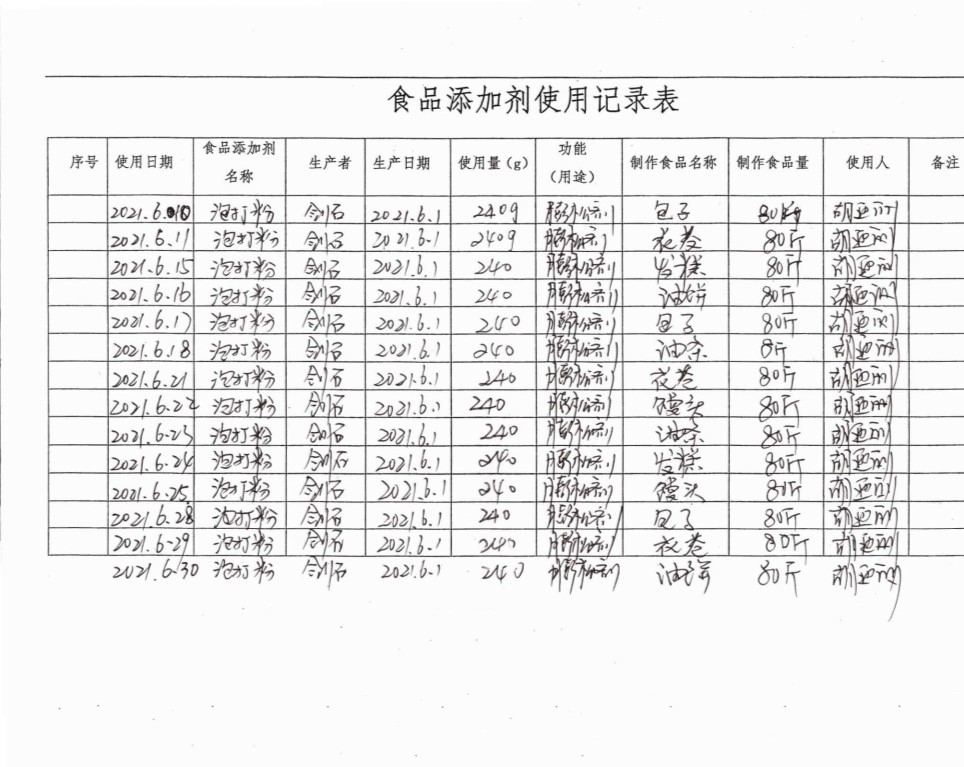 食品添加剂使用记录表
序号 使用日期 食品添加剂名称 生产者 生产日期 使用量(g) 功能(用途) 制作食品名称 制作食品量 使用人 备注
2021.6.10 泡打粉 2021.6.1 240g 膨松剂 包子 胡亚
2021.6.11 泡打粉 2021.6.1 240g 膨松剂 花卷 80斤 胡亚
2021.6.15 泡打粉 2021.6.1 240 膨松剂 发糕 80斤 胡亚
2021.6.16 泡打粉 2021.6.1 240 膨松剂 油饼 80斤 胡亚
2021.6.17 泡打粉 2021.6.1 240 膨松剂 包子 80斤 胡亚
2021.6.18 泡打粉 2021.6.1 240 膨松剂 油条 8斤 胡亚
2021.6.21 泡打粉 2021.6.1 240 膨松剂 花卷 80斤 胡亚
2021.6.22 泡打粉 2021.6.1 240 膨松剂 馒头 80斤 胡亚
2021.6.23 泡打粉 2021.6.1 240 膨松剂 油条 80斤 胡亚
2021.6.24 泡打粉 2021.6.1 240 膨松剂 发糕 80斤 胡亚
2021.6.25 泡打粉 2021.6.1 240 膨松剂 馒头 80斤 胡亚
2021.6.28 泡打粉 2021.6.1 240 膨松剂 包子 80斤 胡亚
2021.6.29 泡打粉 2021.6.1 240 膨松剂 花卷 80斤 胡亚
2021.6.30 泡打粉 2021.6.1 240 膨松剂 油饼 80斤 胡亚